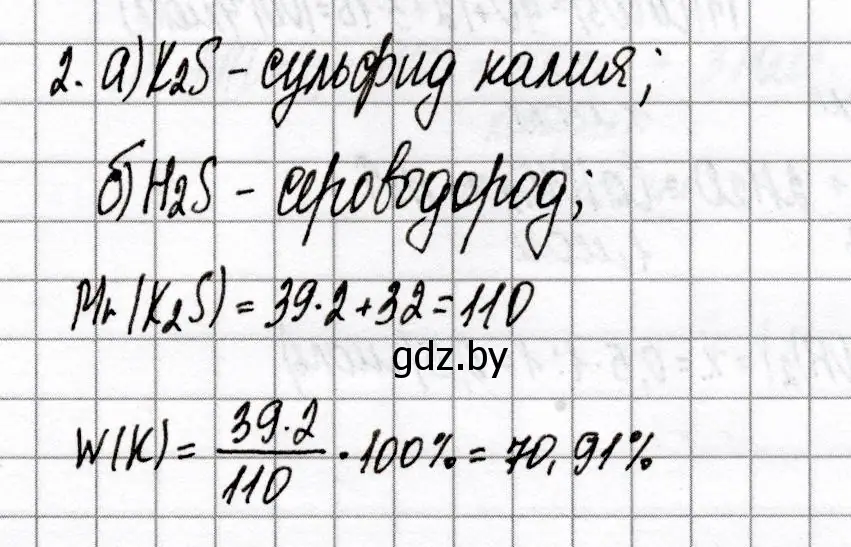 2. а) K₂S – сульфид калия;
б) H₂S – сероводород;
Mr(K₂S) = 39·2+32=110
gdz.by
W(K) = 39·2/110 · 100% = 70,91%